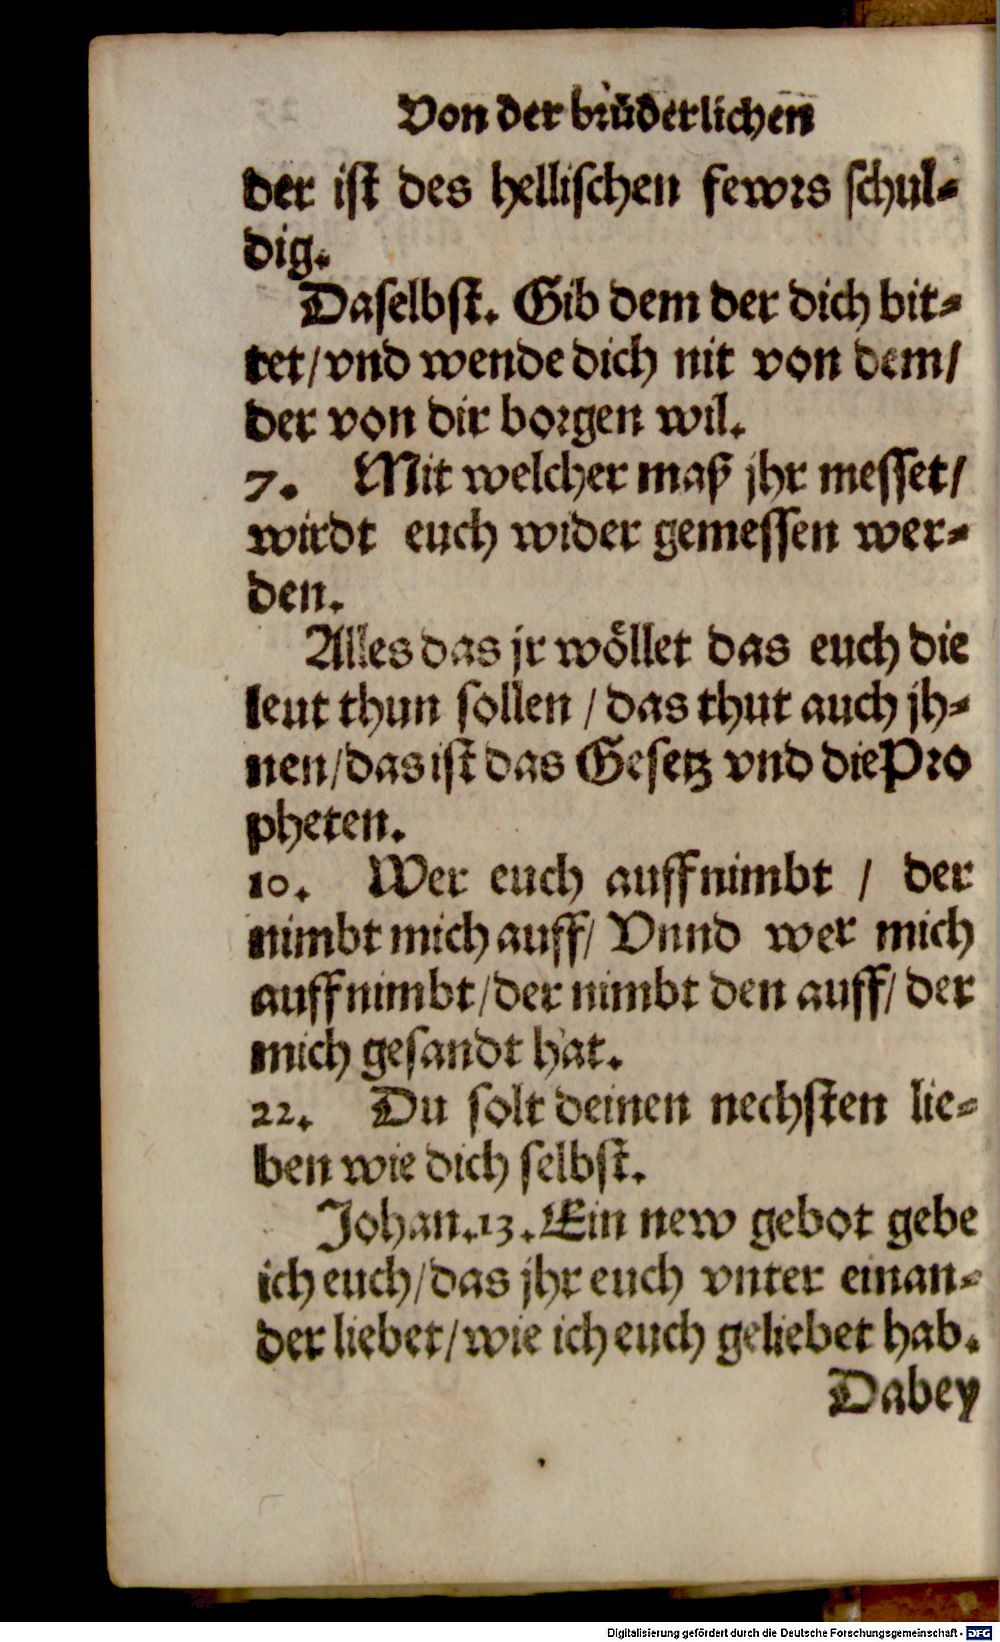 Von der brüderlichen
der ist des hellischen fewrs schul-
dig.
Daselbst. Gib dem der dich bit-
tet/vnd wende dich nit von dem/
der von dir borgen wil.
7. Mit welcher maß jhr messet/
wirdt euch wider gemessen wer-
den.
Alles das jr wöllet das euch die
leut thun sollen / das thut auch jh-
nen/das ist das Gesetz vnd die Pro
pheten.
10. Wer euch auffnimbt / der
nimbt mich auff/ Vnnd wer mich
auffnimbt/der nimbt den auff/ der
mich gesandt hat.
22. Du solt deinen nechsten lie-
ben wie dich selbst.
Johan.13. Ein new gebot gebe
ich euch/das jhr euch vnter einan-
der liebet/wie ich euch geliebet hab.
Dabey
Digitalisierung gefördert durch die Deutsche Forschungsgemeinschaft - DFG